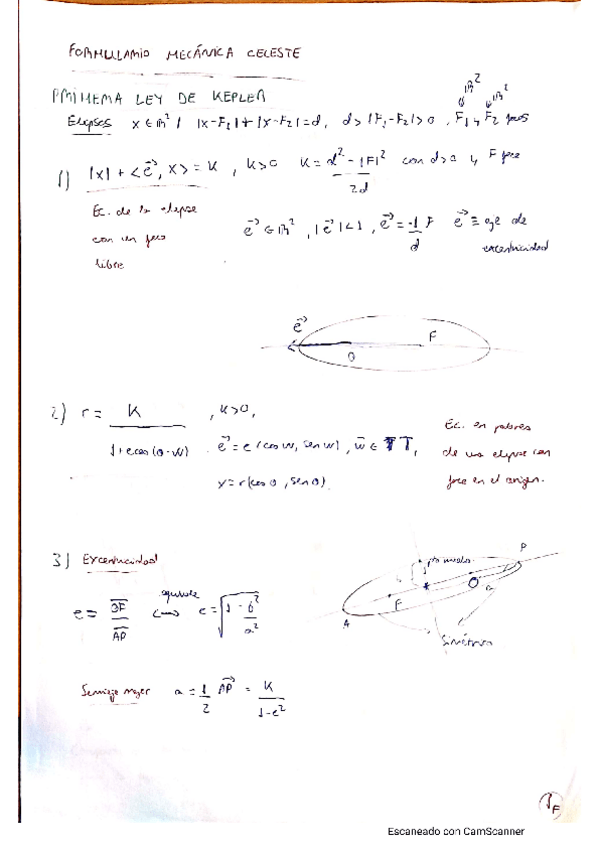 FORMULARIO MECÁNICA CELESTE
PRIMERA LEY DE KEPLER
ℝ² ℝ²
Elipses x ∈ ℝ² / |x-F₁|+|x-F₂|=d, d>|F₁-F₂|>0, F₁ y F₂ focos
1) |x| + <e⃗, x> = K, K>0 K = d² - |F|² / 2d con d>0 y F foco
Ec. de la elipse
con un foco
libre
e⃗ ∈ ℝ², |e⃗|<1, e⃗ = -1/d F e⃗ ≡ eje de
excentricidad
e⃗ 0 F
2) r = K / 1+e cos(θ-w), K>0,
e⃗ = e(cos w, sen w), w ∈ T,
x = r(cos θ, sen θ)
Ec. en polares
de una elipse con
foco en el origen.
3) Excentricidad
e = OF / AP <-> equivale e = √(1 - b²/a²)
pto medio P
b F O a
A
Simétrica
Semieje mayor a = 1/2 AP = K / 1-e²
1F
Escaneado con CamScanner